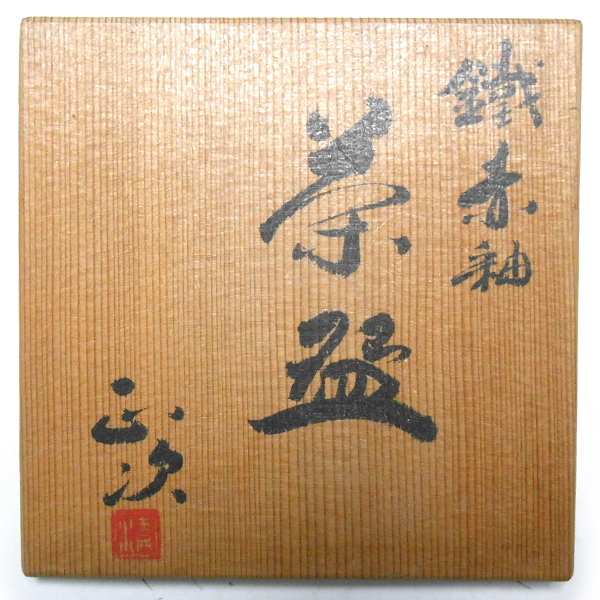 鐵赤釉
茶盌
正次